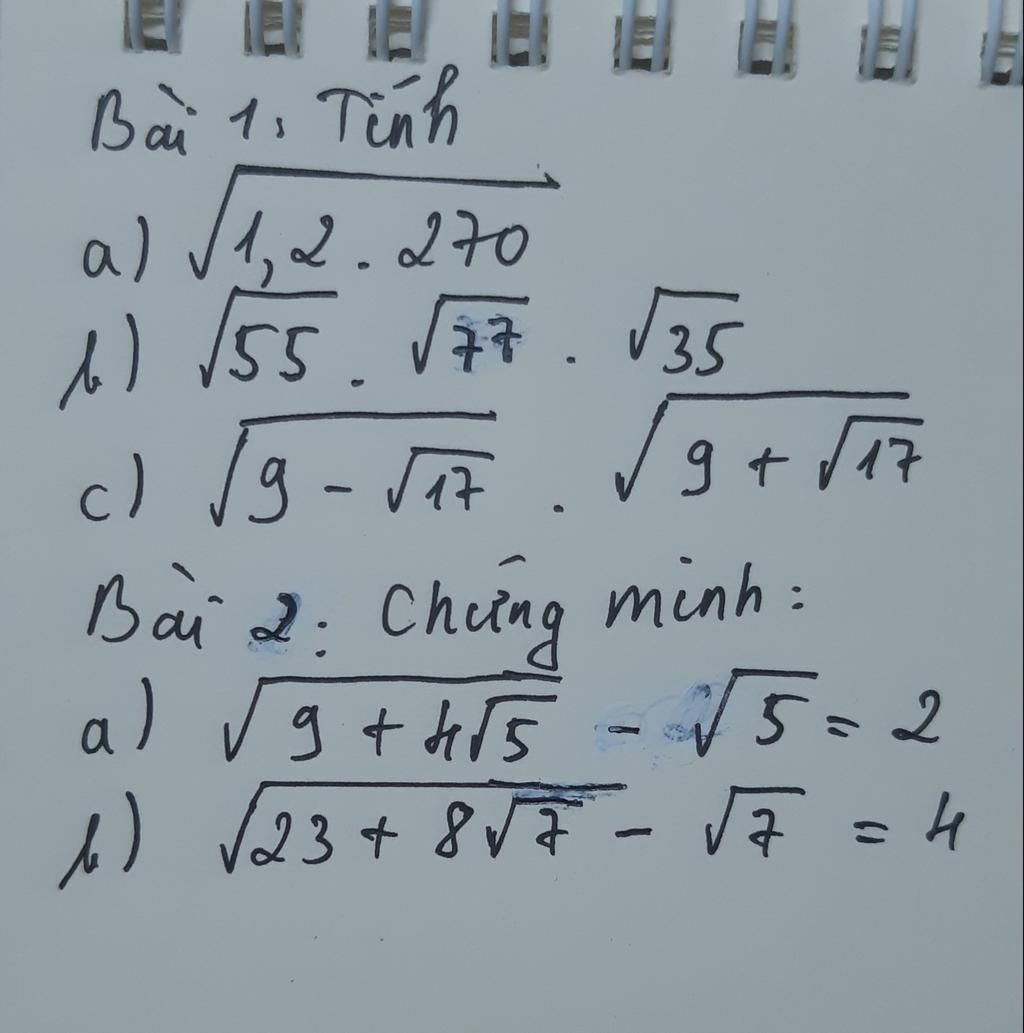 Bài 1: Tính
a) √(1,2 . 270)
b) √55 . √77 . √35
c) √(9 - √17) . √(9 + √17)
Bài 2: Chứng minh:
a) √(9 + 4√5) - √5 = 2
b) √(23 + 8√7) - √7 = 4